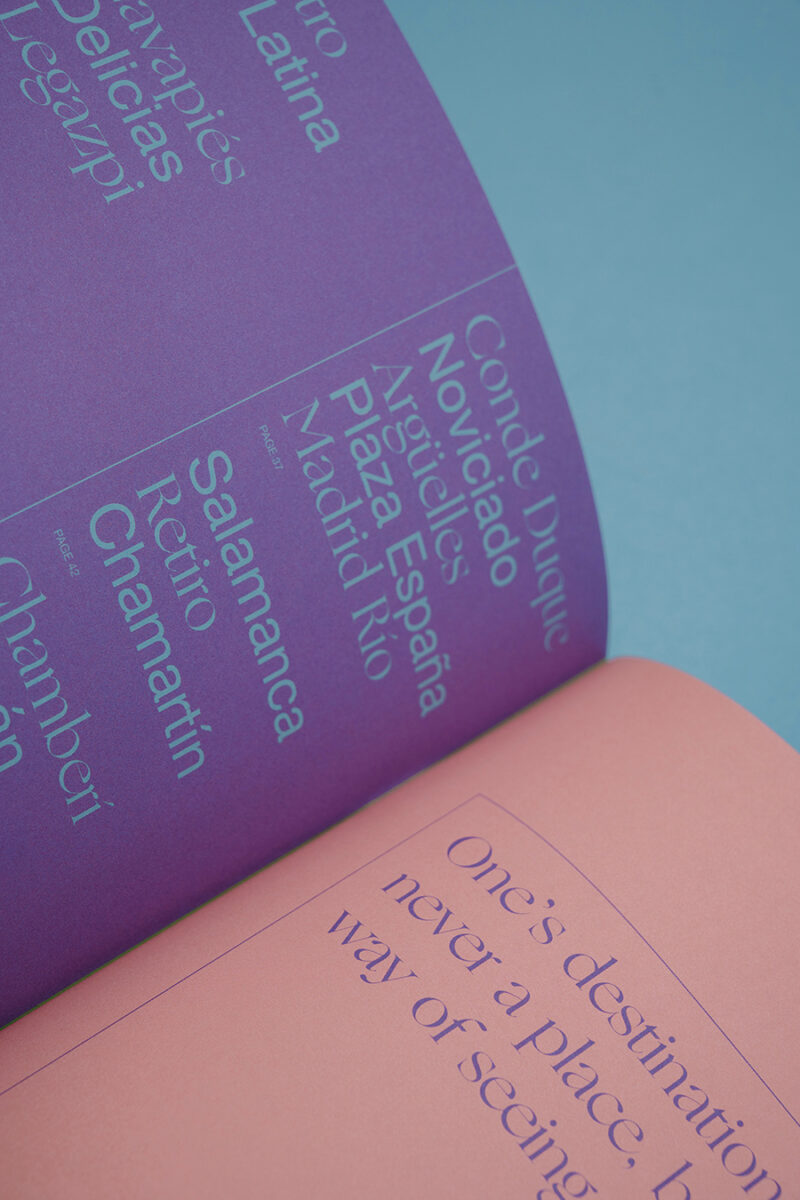 tro
Latina
avapiés
Delicias
Legazpi
Conde Duque
Noviciado
Argüelles
Plaza España
Madrid Río
PAGE 37
Salamanca
Retiro
Chamartín
PAGE 42
Chamberí
án
One's destination
never a place, b
way of seeing